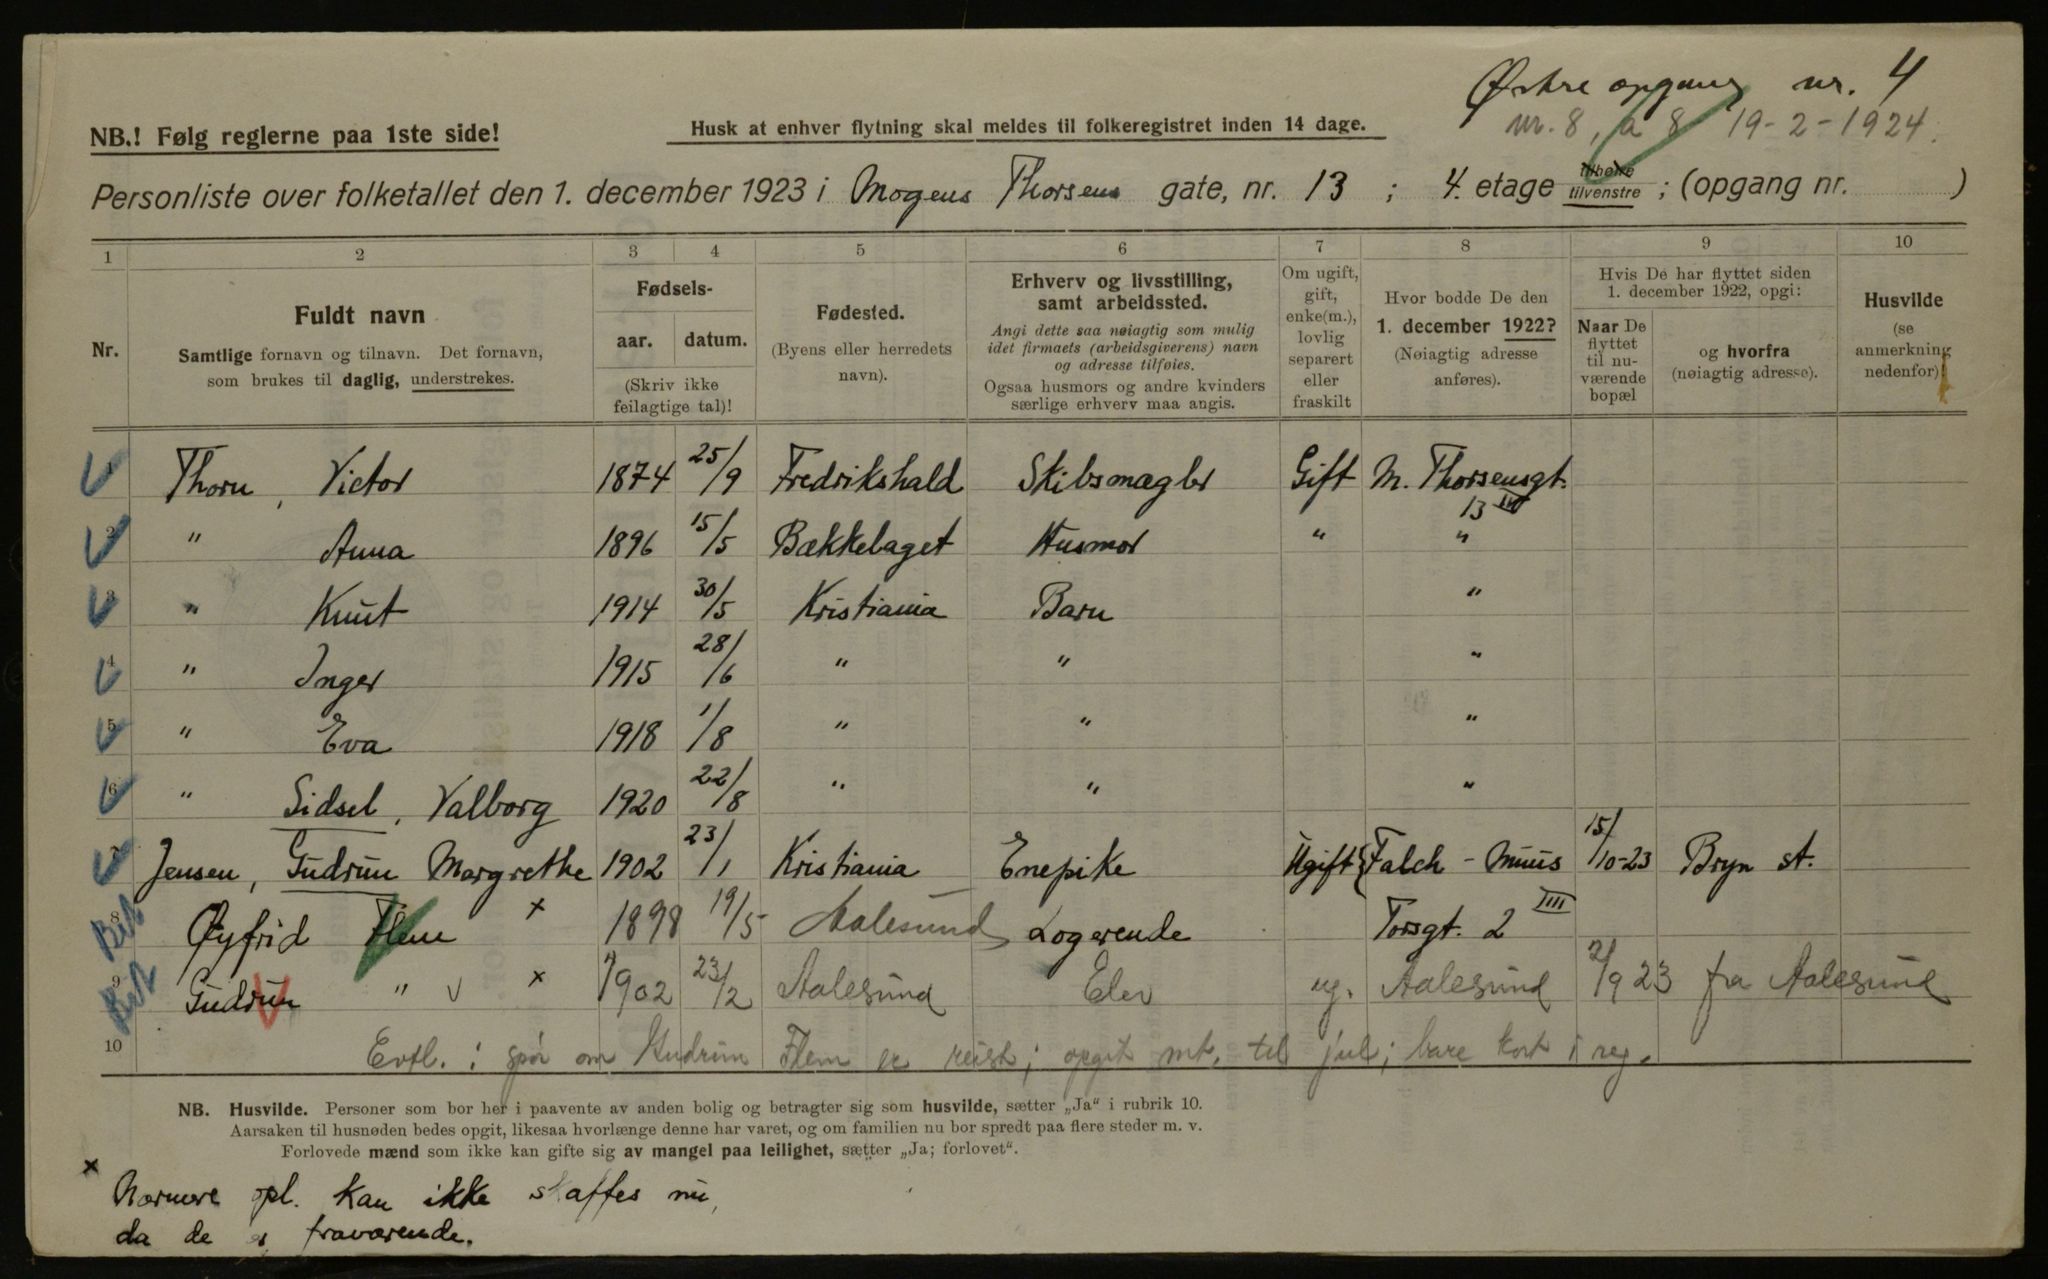 Østre opgang nr. 4
nr. 8, a 8 19-2-1924.
NB.! Følg reglerne paa 1ste side!
Husk at enhver flytning skal meldes til folkeregistret inden 14 dage.
Personliste over folketallet den 1. december 1923 i Mogens Thorsens gate, nr. 13 ; 4. etage tilhøire tilvenstre ; (opgang nr. )
1 2 3 4 5 6 7 8 9 10
Nr.
Fuldt navn
Samtlige fornavn og tilnavn. Det fornavn,
som brukes til daglig, understrekes.
Fødsels-
aar. datum.
(Skriv ikke
feilagtige tal)!
Fødested.
(Byens eller herredets
navn).
Erhverv og livsstilling,
samt arbeidssted.
Angi dette saa nøiagtig som mulig
idet firmaets (arbeidsgiverens) navn
og adresse tilføies.
Ogsaa husmors og andre kvinders
særlige erhverv maa angis.
Om ugift,
gift,
enke(m.),
lovlig
separert
eller
fraskilt
Hvor bodde De den
1. december 1922?
(Nøiagtig adresse
anføres).
Hvis De har flyttet siden
1. december 1922, opgi:
Naar De
flyttet
til nu-
værende
bopæl
og hvorfra
(nøiagtig adresse).
Husvilde
(se
anmerkning
nedenfor)!
1 Thorn, Victor 1874 25/9 Fredrikshald Skibsmægler Gift M. Thorsensgt.
13 III
2 " Anna 1896 15/5 Bækkelaget Husmor " "
3 " Knut 1914 30/5 Kristiania Barn "
4 " Inger 1915 28/6 " " "
5 " Eva 1918 1/8 " " "
6 " Sidsel, Valborg 1920 22/8 " " "
7 Jensen, Gudrun Margrethe 1902 23/1 Kristiania Enepike Ugift Falch - Muus 15/10-23 Bryn st.
8 Øyfrid Flem x 1898 19/5 Aalesund Logerende Torsgt. 2 IIII
9 Gudrun " v x 1902 23/2 Aalesund Elev ug. Aalesund 2/9 23 fra Aalesund
10 Evtl. : spør om Gudrun Flem er reist; opgit mt. til jul; bare kort i reg.
NB. Husvilde. Personer som bor her i paavente av anden bolig og betragter sig som husvilde, sætter „Ja“ i rubrik 10.
Aarsaken til husnøden bedes opgit, likesaa hvorlænge denne har varet, og om familien nu bor spredt paa flere steder m. v.
Forlovede mænd som ikke kan gifte sig av mangel paa leilighet, sætter „Ja; forlovet“.
x Nærmere opl. kan ikke skaffes nu,
da de er fraværende.